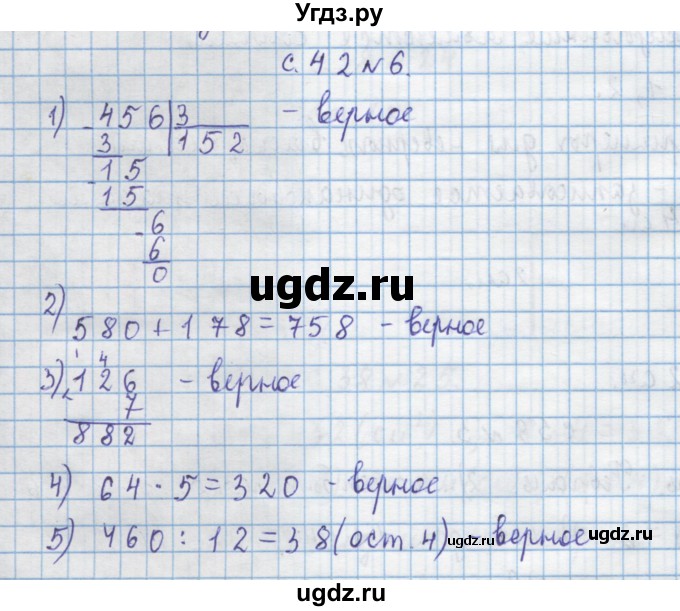 Угдз.ру
с. 42 №6.
1) - 456 | 3 - верное
3 | 152
- 15
15
- 6
6
0
ugdz.ru
2)
580 + 178 = 758 - верное
1 4
3) × 126 - верное
7
882
4) 64 · 5 = 320 - верное
5) 460 : 12 = 38 (ост. 4) ugdz.ru верное ugdz.ru
ugdz.ru